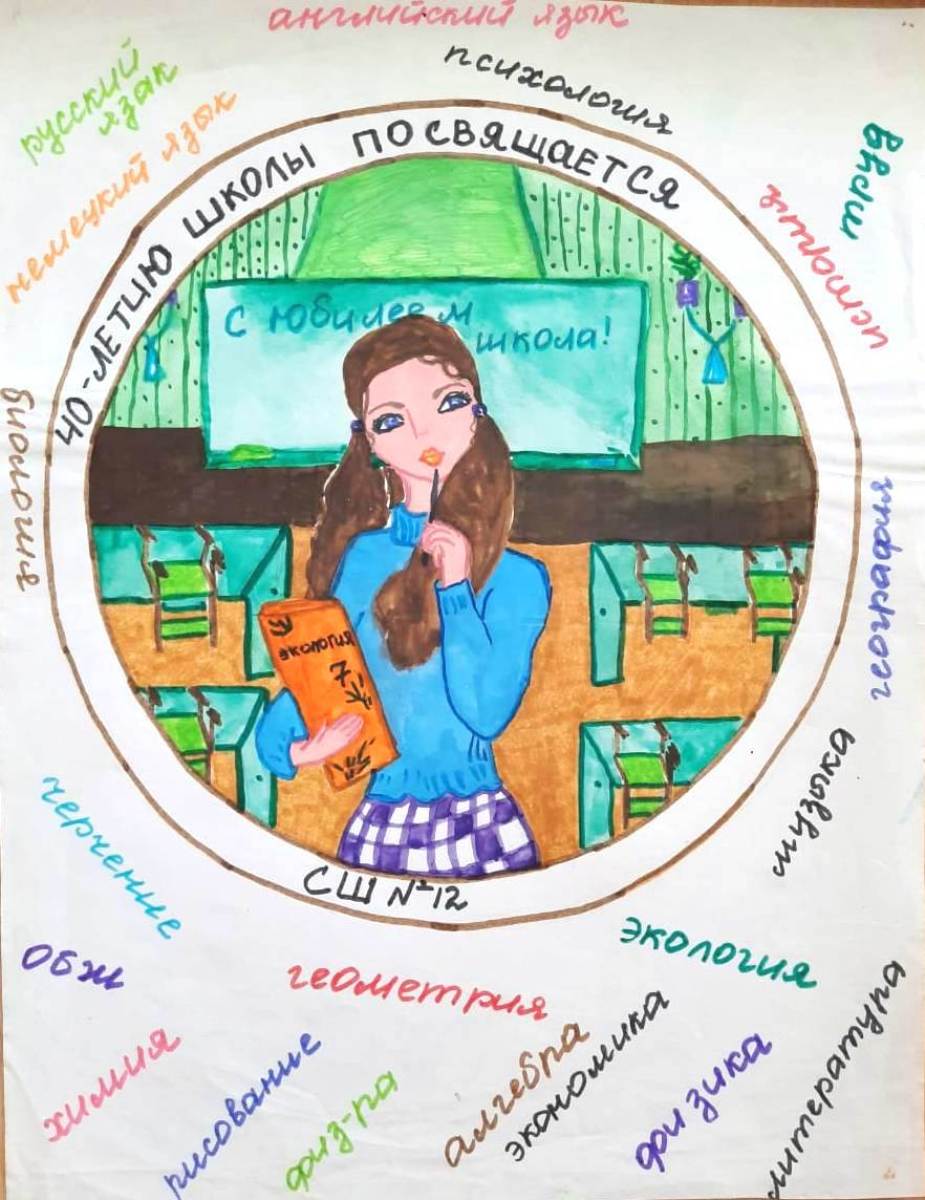 английский язык
психология
русский
язак
немецкий язык
история
40-ЛЕТИЮ ШКОЛЫ ПОСВЯЩАЕТСЯ
С юбилеем
школа!
биология
география
экология
7
музыка
черчение
СШ №12
экология
ОБЖ
геометрия
литература
химия
рисование
физ-ра
алгебра
экономика
физика